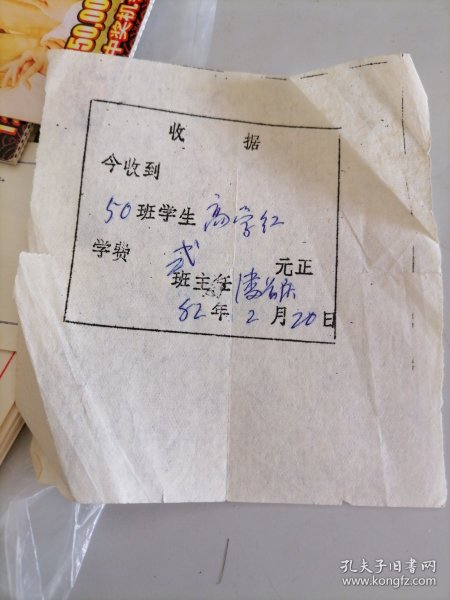 50,00
中奖机
收 据
今收到
50班学生 高学红
学费 弍 元正
班主任 潘
82年 2月20日
孔夫子旧书网
www.kongfz.com